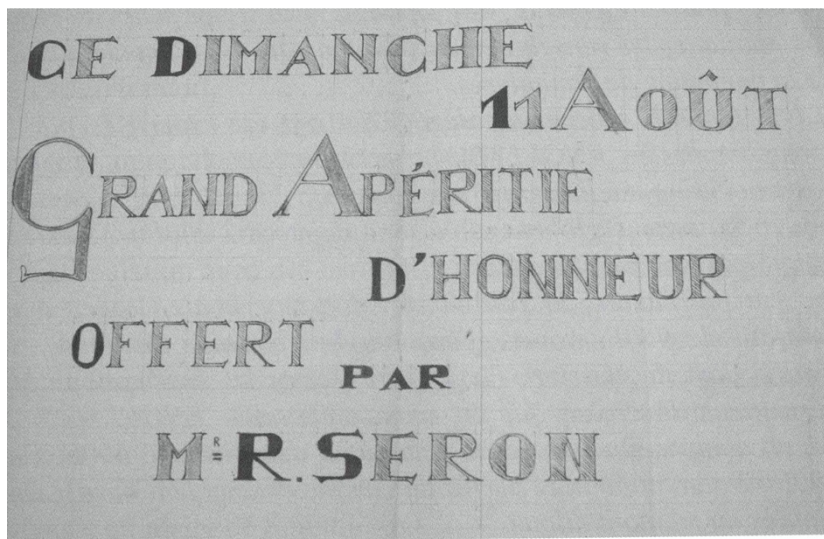 CE DIMANCHE
11 AOÛT
GRAND APÉRITIF
D'HONNEUR
OFFERT
PAR
MR R. SERON